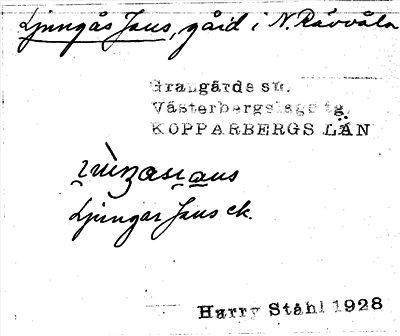 Ljungås Jans, gård i N. Råvvåla
Grangärde sn.
Västerbergslags tg.
KOPPARBERGS LÄN
Ljungas Jans ek.
Harry Ståhl 1928